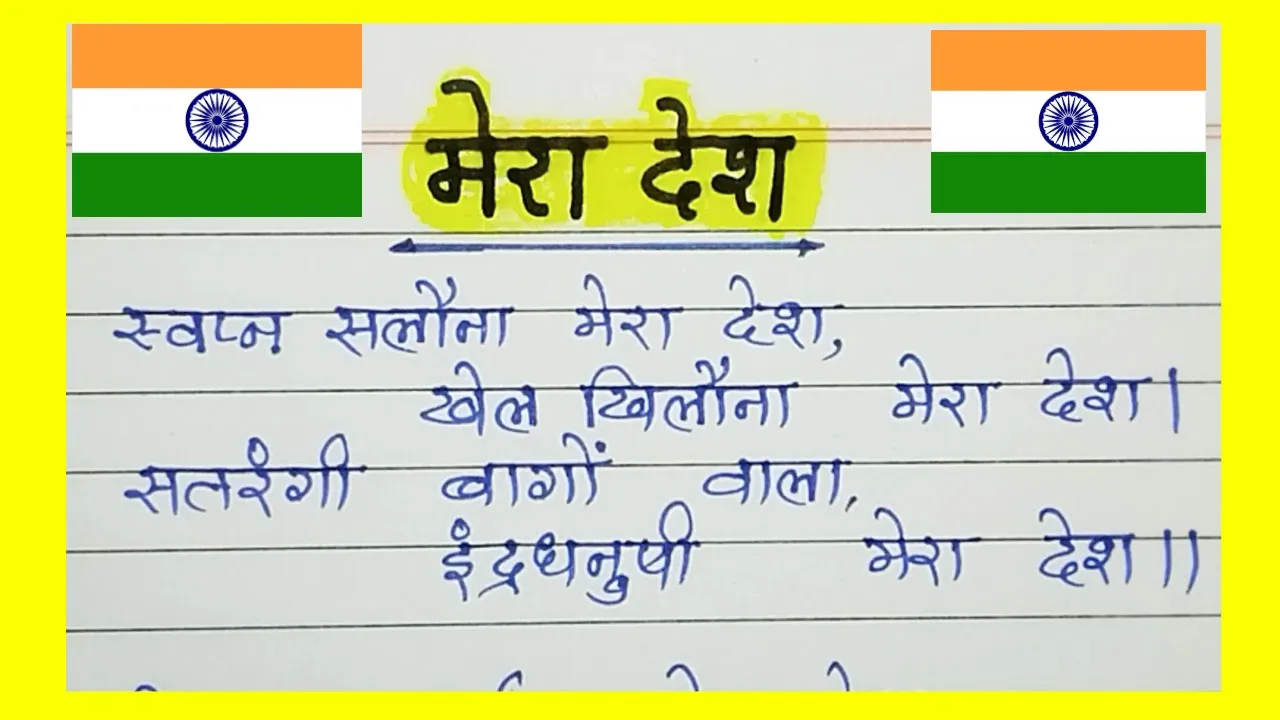 मेरा देश
स्वप्न सलौना मेरा देश,
खेल खिलौना मेरा देश।
सतरंगी बागों वाला,
इंद्रधनुषी मेरा देश।।